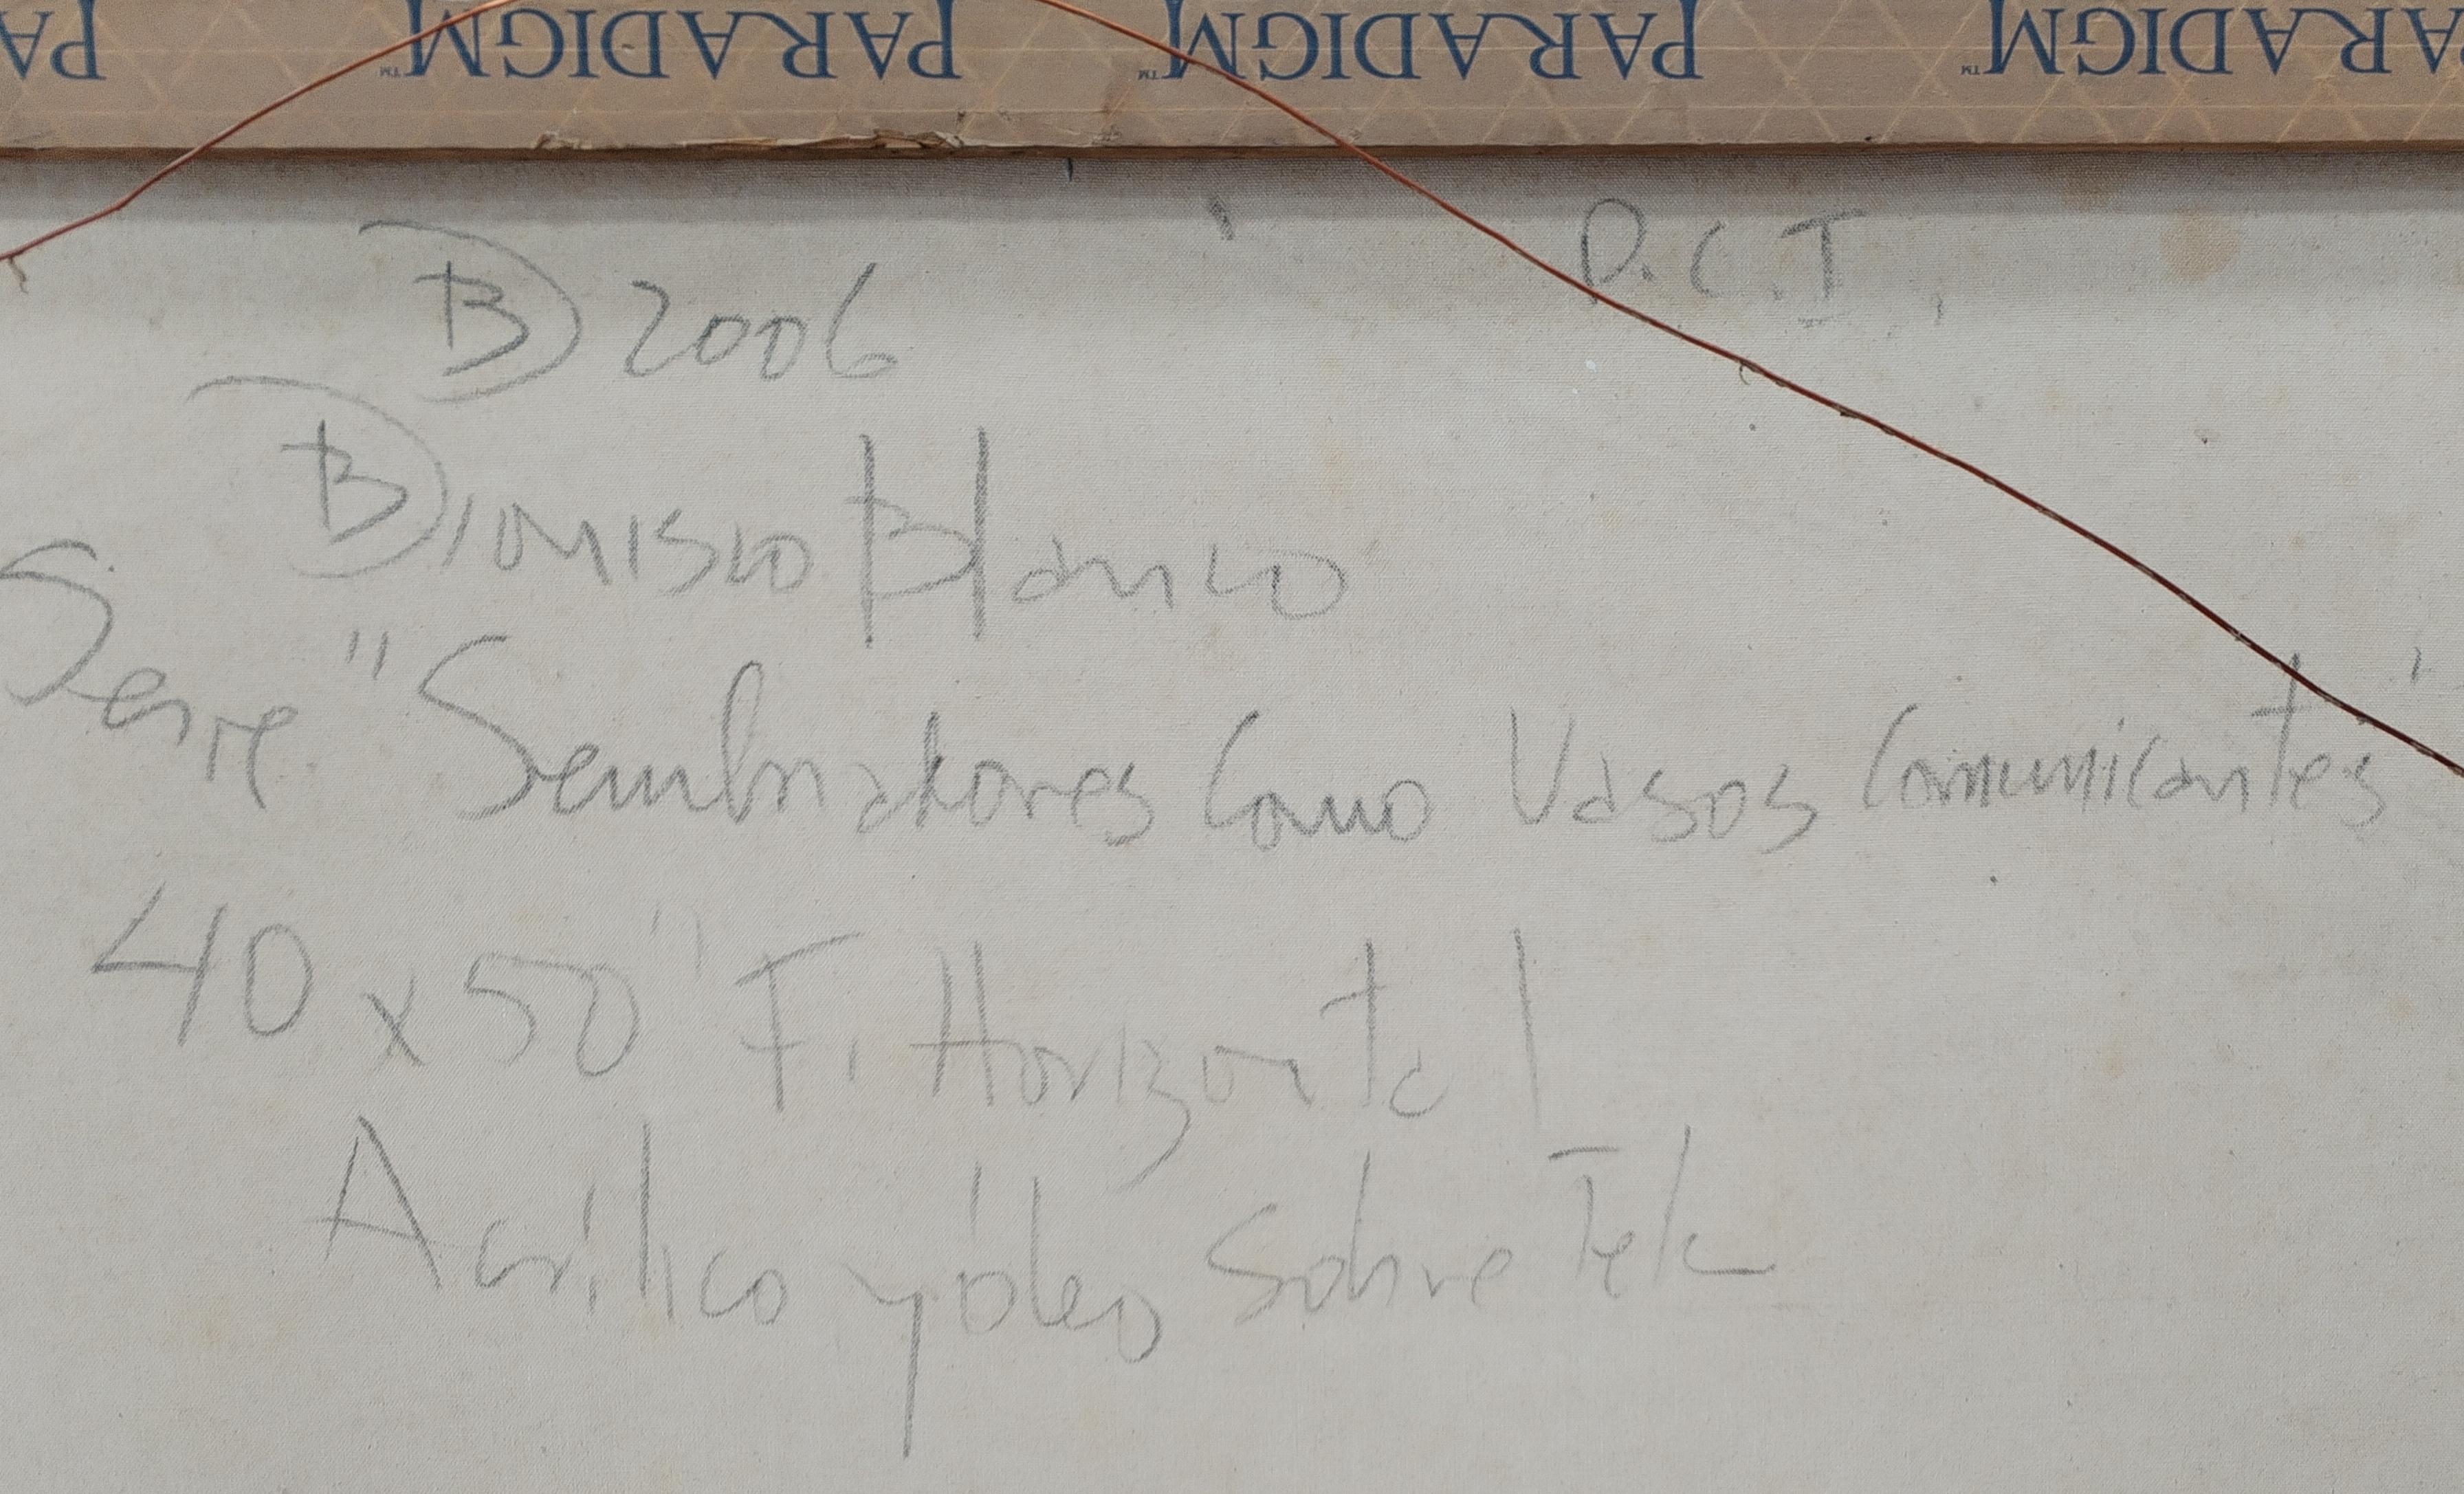 PA PARADIGM™ PARADIGM™ PARADIGM™
P.C.I.
DB 2006
Dionisio Blanco
Serie "Sembradores Como Vasos Comunicantes"
40 x 50" F. Horizontal
Acrílico y óleo Sobre Tela